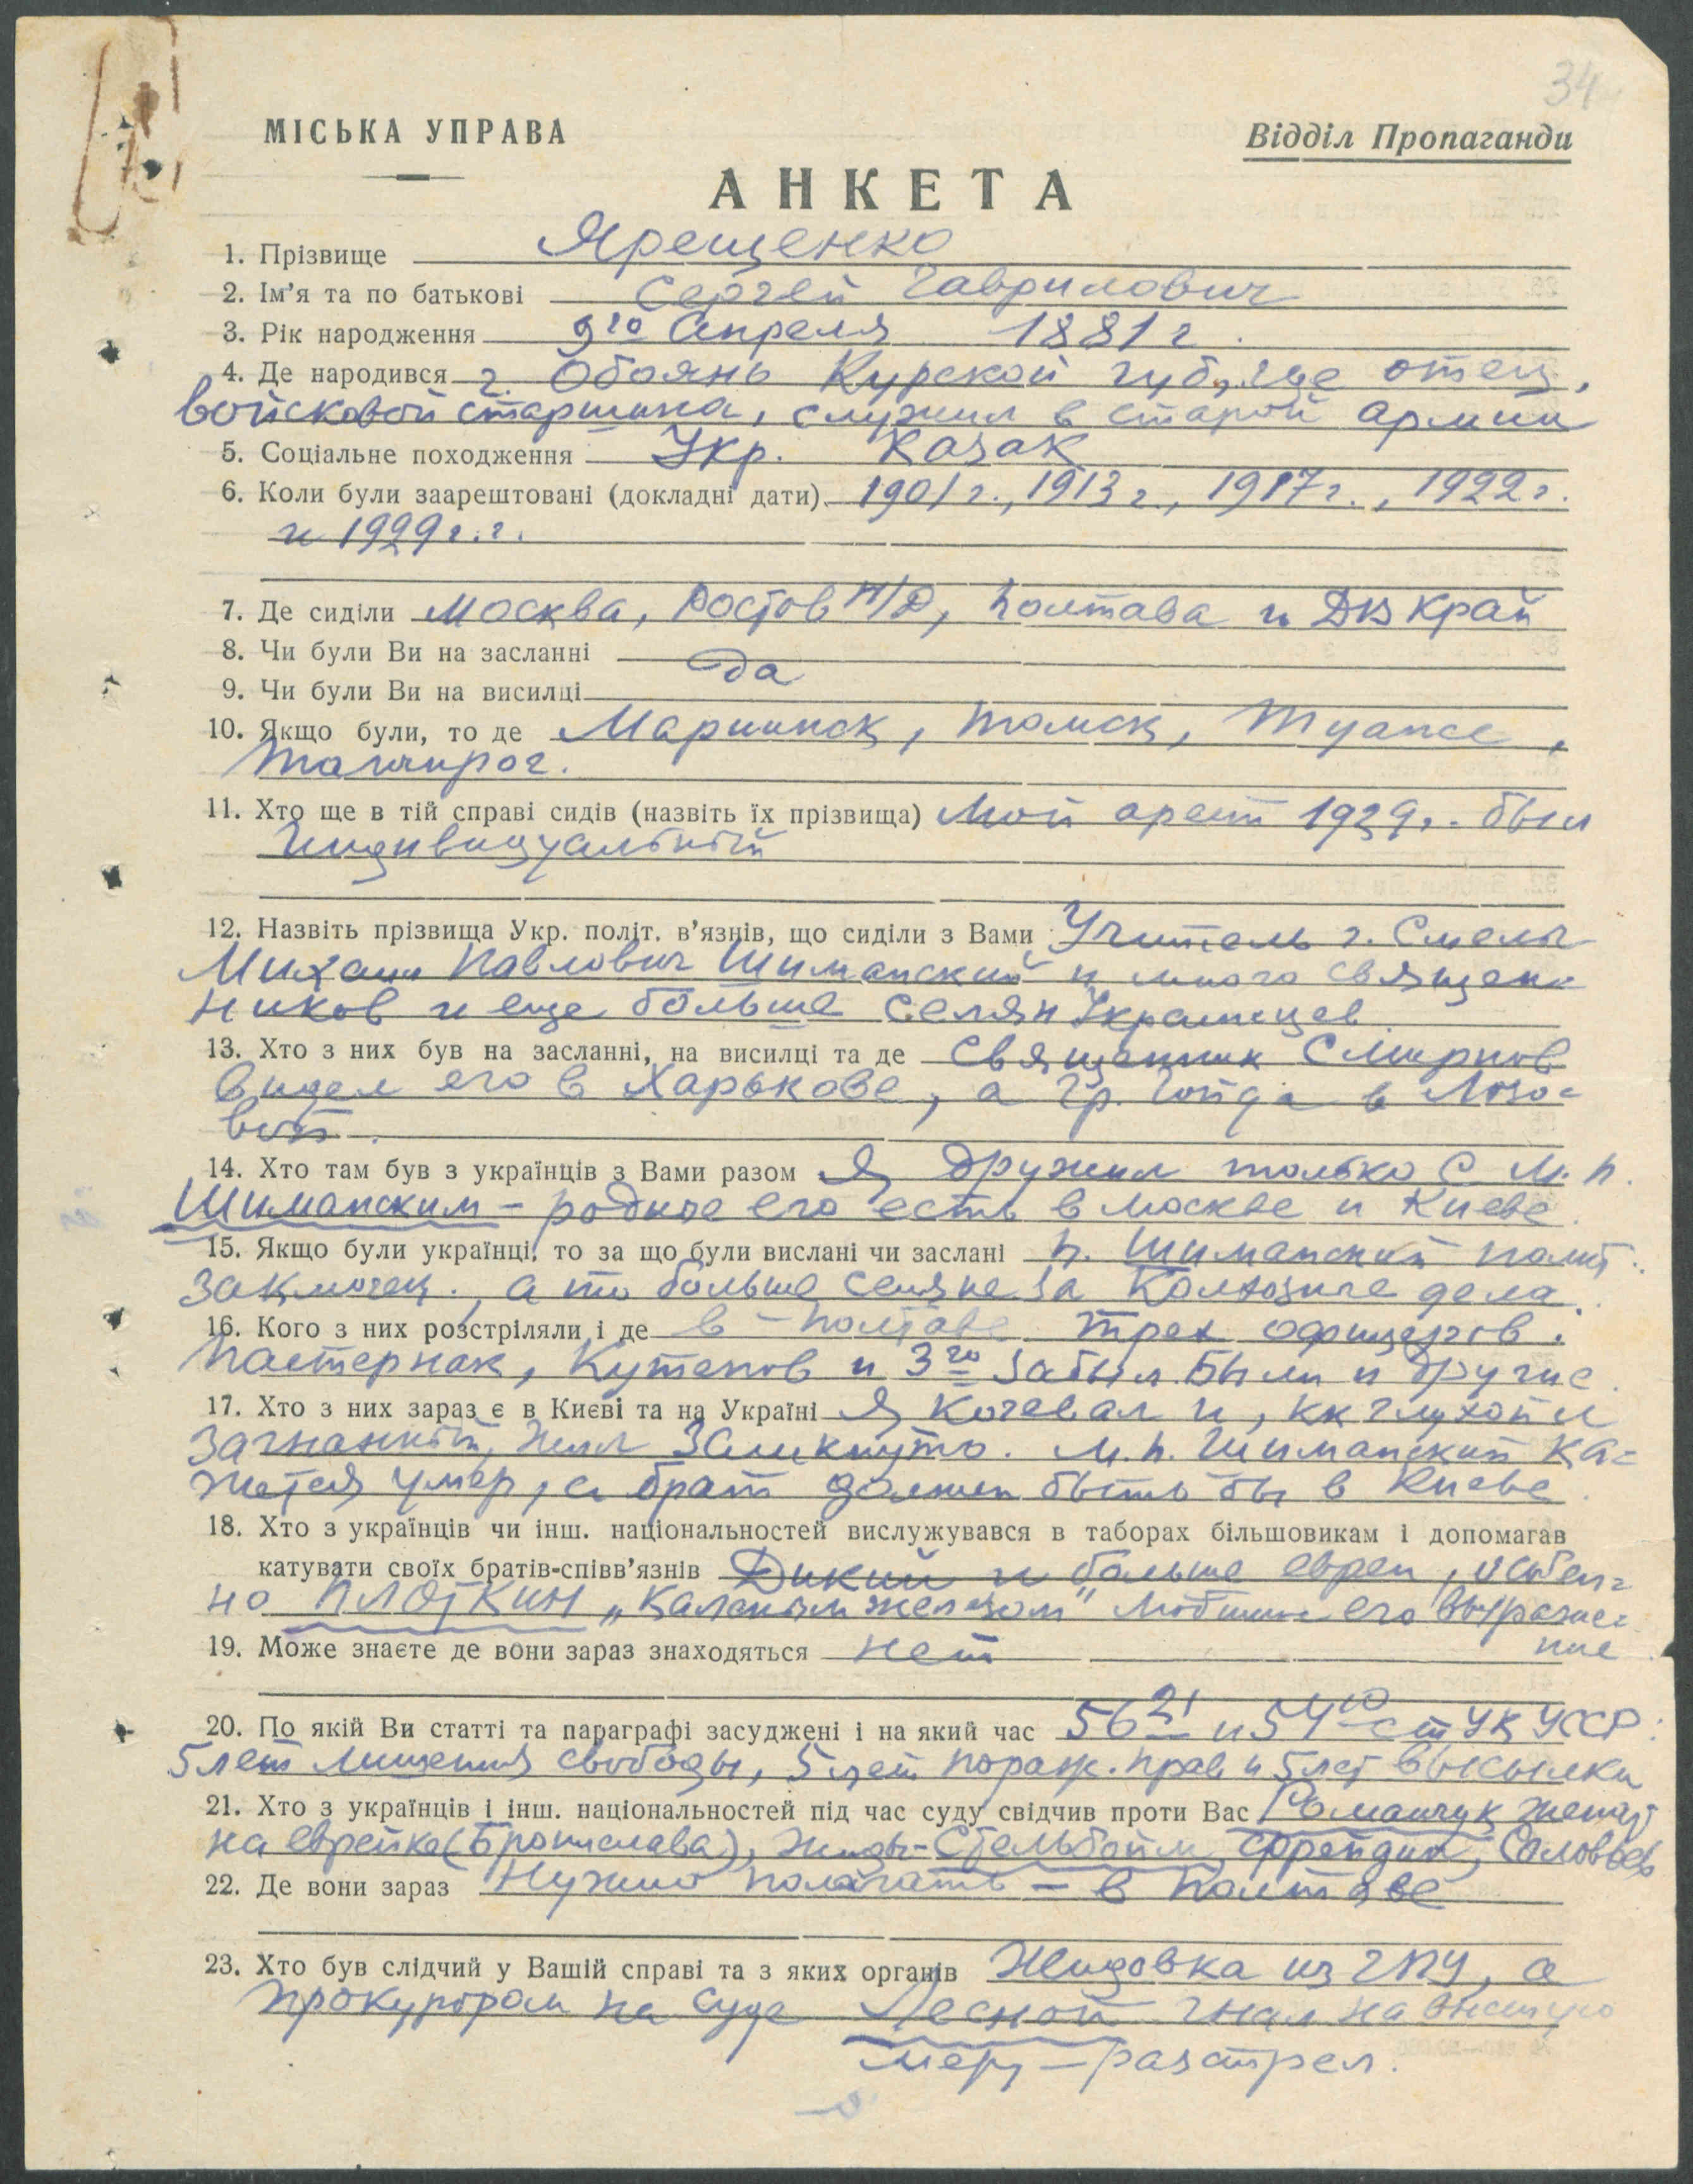 34
МІСЬКА УПРАВА
Відділ Пропаганди
АНКЕТА
1. Прізвище Ярещенко
2. Ім'я та по батькові Сергей Гаврилович
3. Рік народження 9го Апреля 1881 г.
4. Де народився г. Обоянь Курской губ, где отец,
войсковой старшина, служил в старой армии
5. Соціальне походження Укр. Казак
6. Коли були заарештовані (докладні дати) 1901 г., 1913 г., 1917 г., 1922 г.
и 1929 г.г.
7. Де сиділи Москва, Ростов н/Д, Полтава и ДВ край
8. Чи були Ви на засланні
да
9. Чи були Ви на висилці
10. Якщо були, то де Мариинск, Томск, Туапсе,
Таганрог.
11. Хто ще в тій справі сидів (назвіть їх прізвища) Мой арест 1929 г. был
индивидуальный
12. Назвіть прізвища Укр. політ. в'язнів, що сиділи з Вами Учитель г. Смелы
Михаил Павлович Шиманский и много священ-
ников и еще больше селян Украинцев
13. Хто з них був на засланні, на висилці та де Священник Смирнов
видел его в Харькове, а Гр. Гойда в Лозо-
вой.
14. Хто там був з українців з Вами разом Я дружил только с М. П.
Шиманским - родные его есть в Москве и Киеве.
15. Якщо були українці, то за що були вислані чи заслані П. Шиманский полит.
заключен., а то больше селяне за Колхозные дела.
16. Кого з них розстріляли і де в Полтаве трех офицеров:
Пастернак, Кутепов и 3го забыл. Были и другие.
17. Хто з них зараз є в Києві та на Україні Я кочевал и, как глухой и
загнанный, жил замкнуто. М.П. Шиманский ка-
жется умер, а брат должен быть бы в Киеве.
18. Хто з українців чи інш. національностей вислужувався в таборах більшовикам і допомагав
катувати своїх братів-співв'язнів Дикий и больше евреи, особен-
но Плоткин „Каленым железом" любимое его выраже-
ние
19. Може знаєте де вони зараз знаходяться нет
20. По якій Ви статті та параграфі засуджені і на який час 56 21 и 54 10 ст УК УССР:
5 лет лишения свободы, 5 лет пораж. прав и 5 лет высылки
21. Хто з українців і інш. національностей під час суду свідчив проти Вас Романчук женат
на еврейке (Бронислава), жиды - Стельбойм, Фрейдин, Соловьев
22. Де вони зараз Нужно полагать - в Полтаве
23. Хто був слідчий у Вашій справі та з яких органів Жидовка из ГПУ, а
прокурором на суде Лесной гнал на высшую
меру - разстрел.